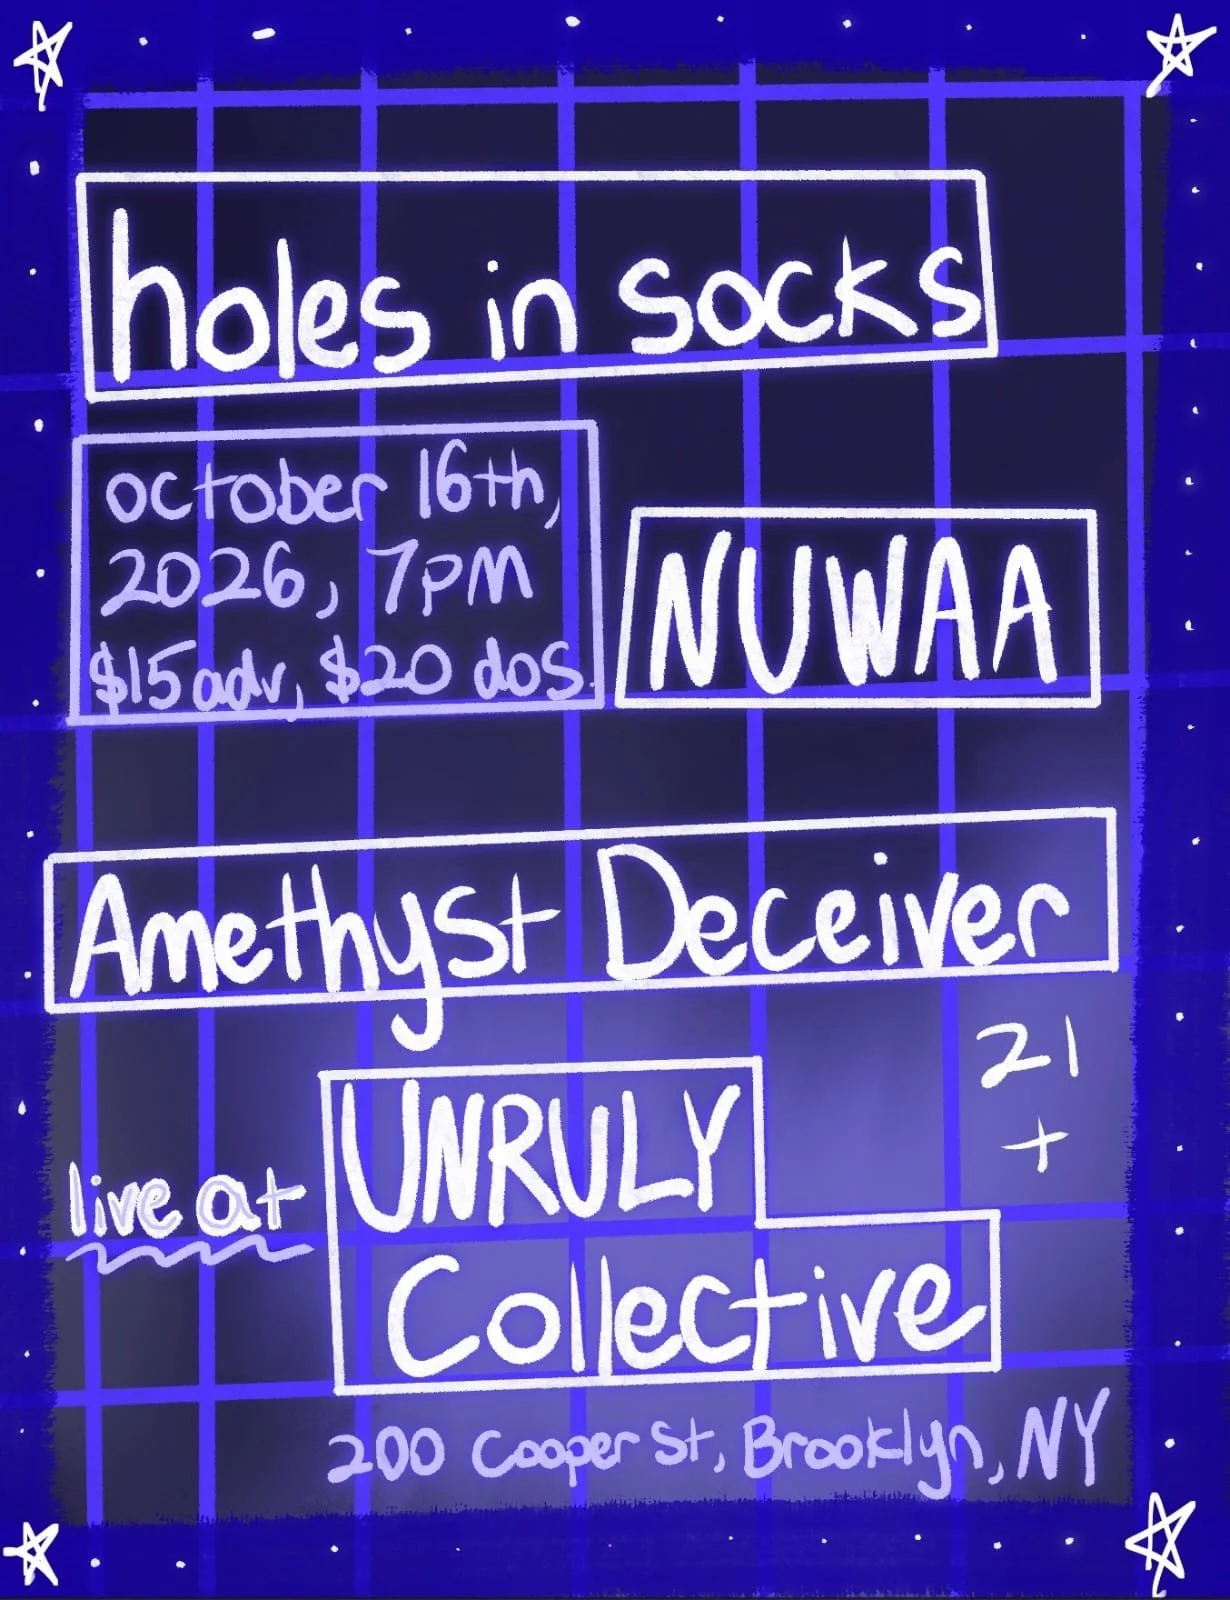 holes in socks
october 16th,
2026, 7pm
$15 adv, $20 dos.
NUWAA
Amethyst Deceiver
21
+
live at
UNRULY
Collective
200 Cooper St, Brooklyn, NY